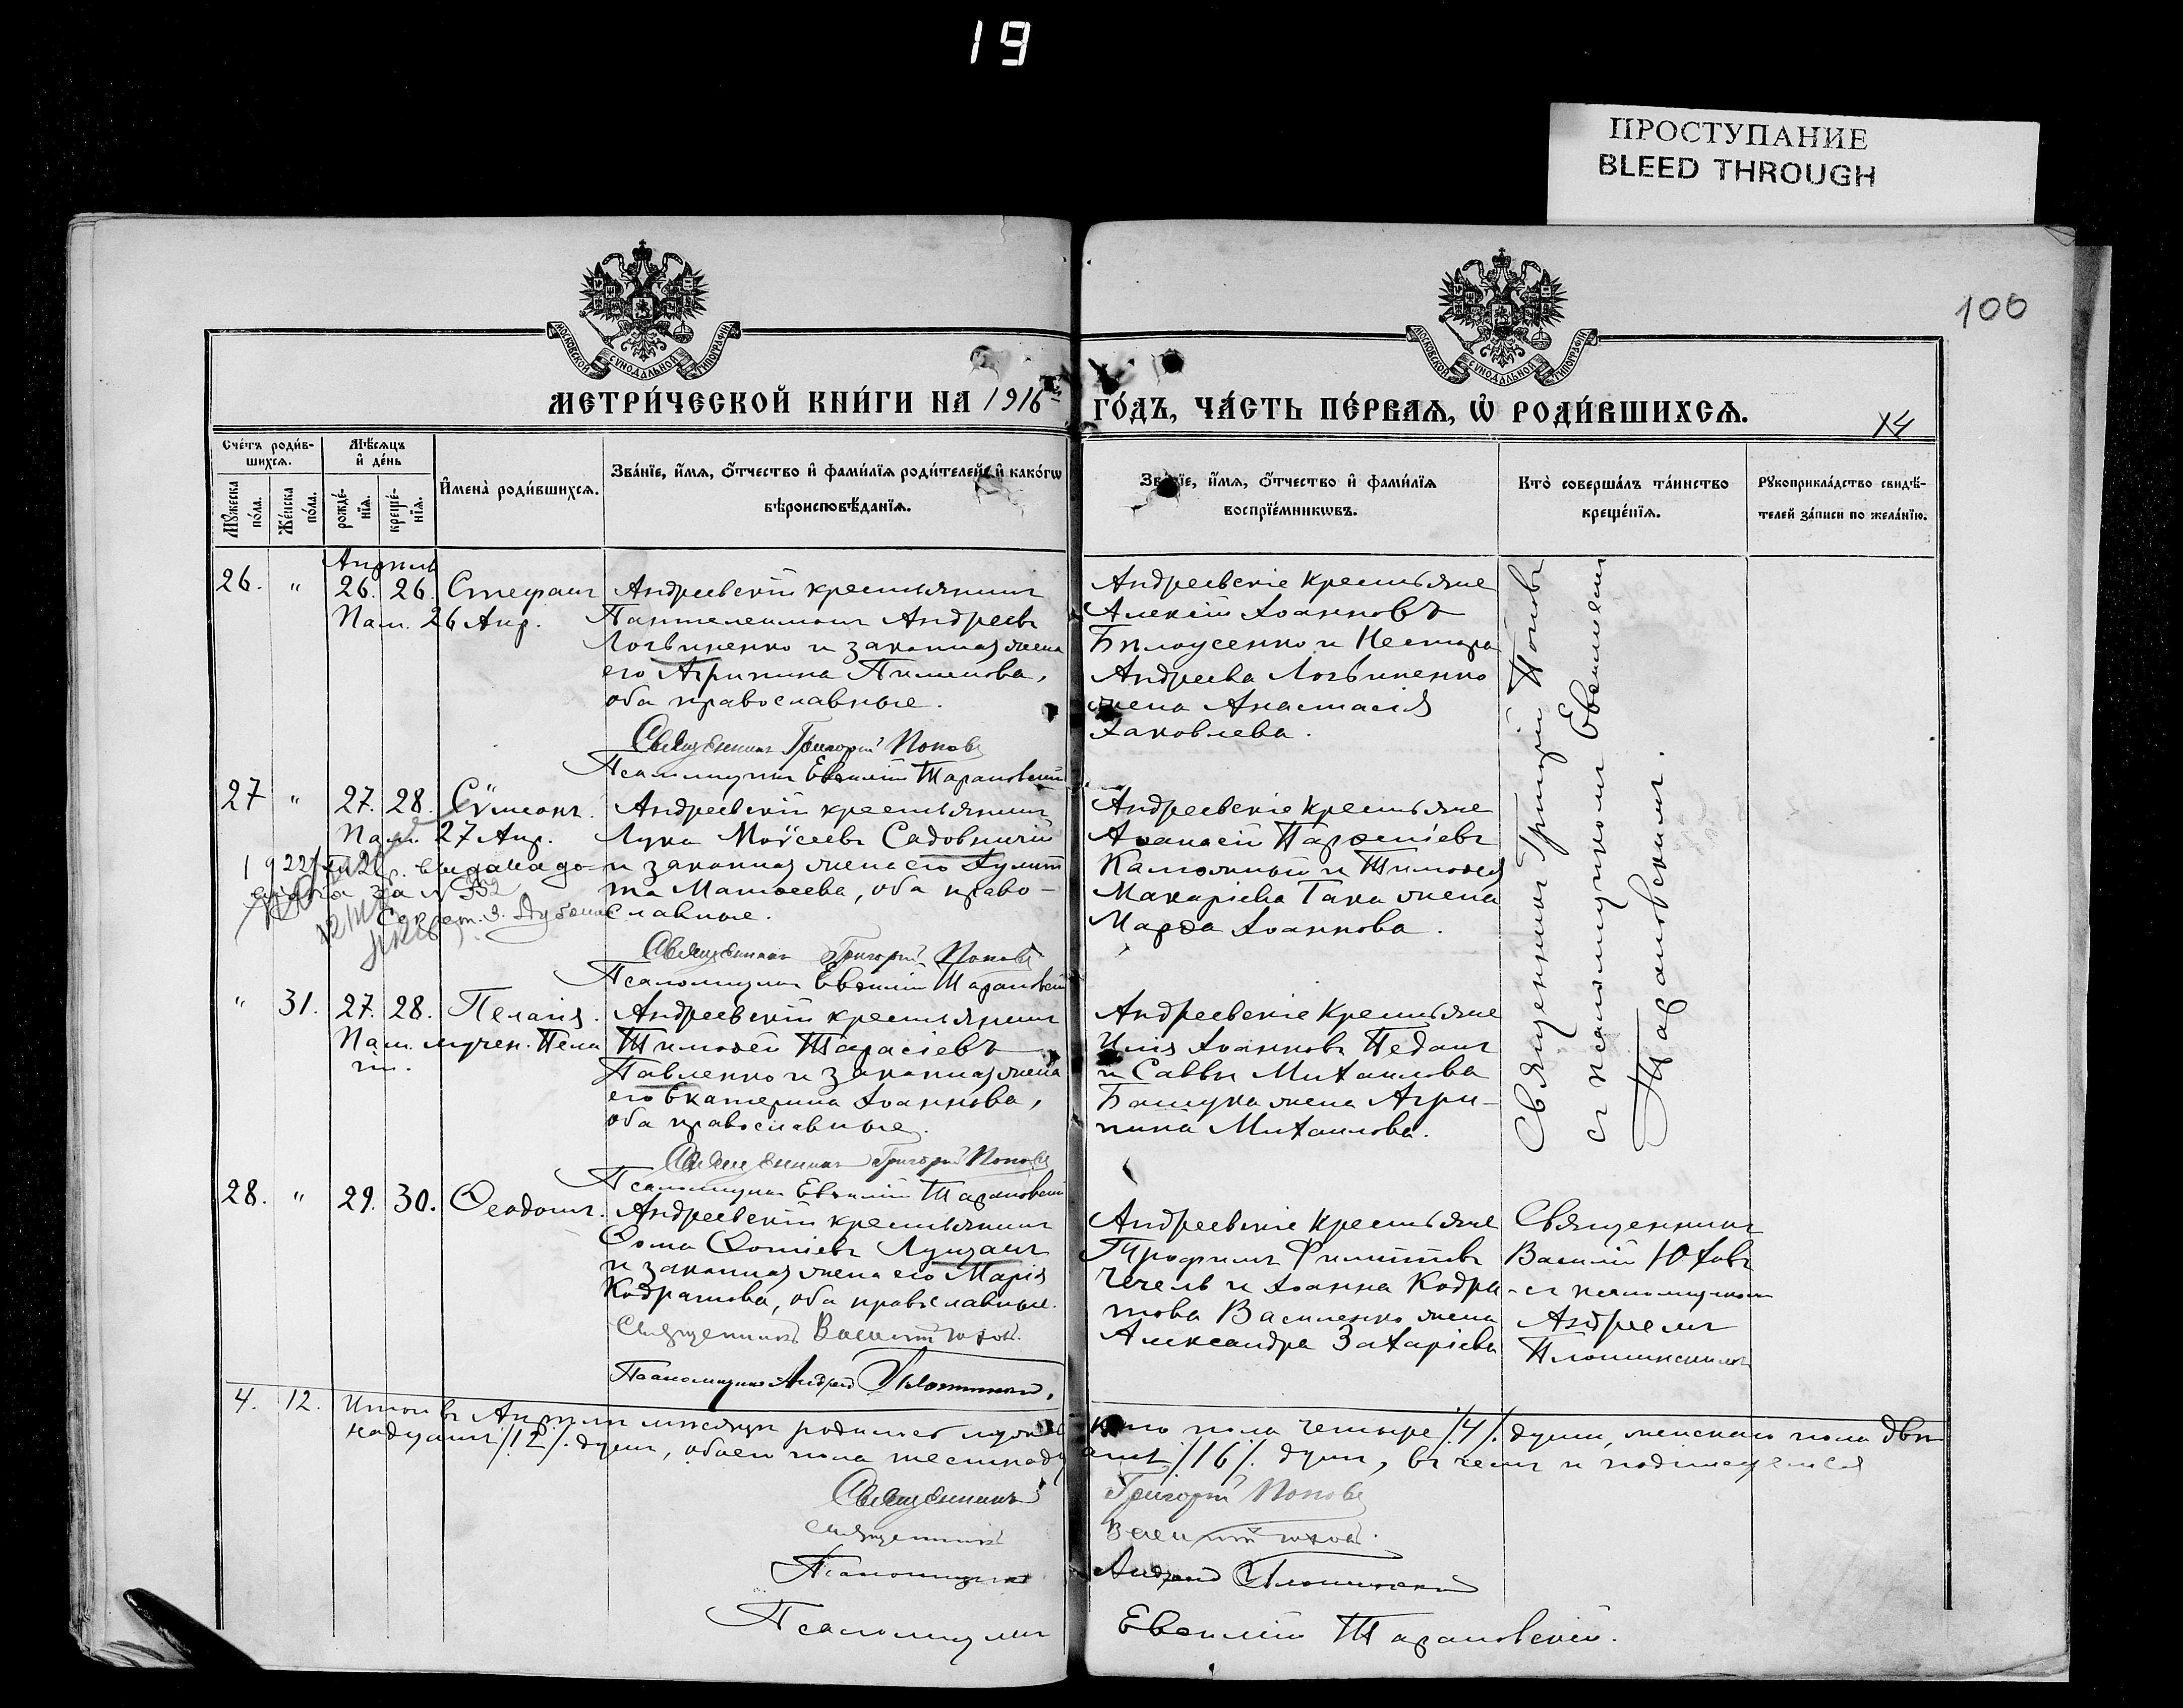 19
ПРОСТУПАНИЕ
BLEED THROUGH
100
МОСКОВСКОЙ СУНОДАЛЬНОЙ ТИПОГРАФІИ
МОСКОВСКОЙ СУНОДАЛЬНОЙ ТИПОГРАФІИ
МЕТРИ́ЧЕСКОЙ КНИ́ГИ НА 1916 ГО́ДЪ, ЧА́СТЬ ПЕ́РВАѦ, Ѡ҆ РОДИ́ВШИХСѦ.
Сче́тъ роди́в-
шихсѧ.
Мѣ́сѧцъ
и҆ де́нь
Мꙋ́жеска по́ла.
Же́нска по́ла.
рожде́-нїѧ.
креще́-нїѧ.
И҆мена̀ роди́вшихсѧ.
Зва́нїе, и҆́мѧ, ѻ҆́тчество и҆ фами́лїѧ роди́телей, и҆ како́гѡ
вѣроисповѣ́данїѧ.
Зва́нїе, и҆́мѧ, ѻ҆́тчество и҆ фами́лїѧ
воспрїе́мникѡвъ.
Кто̀ соверша́лъ та́инство
креще́нїѧ.
Рꙋкоприкла́дство свидѣ́-
телей за́писи по жела́нїю.
Апрѣль
26. " 26. 26. Стефанъ
Пам. 26 Апр.
Андреевскій крестьянинъ
Пантелеимонъ Андреевъ
Логвиненко и законная жена
его Агрипина Пименова,
оба православные.
Священникъ Григорій Поповъ
Псаломщикъ Евѳимій Тарановскій
Андреевскіе крестьяне
Алексій Іоанновъ
Билоусенко и Нестора
Андреева Логвиненко
жена Анастасія
Іаковлева.
Священникъ Григорій Поповъ
съ псаломщикомъ Евѳиміемъ
Тарановскимъ.
27 " 27. 28. Сѵмеонъ.
Пам. 27 Апр.
Андреевскій крестьянинъ
Лука Моѵсеевъ Садовничій
и законная жена его Іулит
та Матѳеева, оба право-
славные.
Священникъ Григорій Поповъ
Псаломщикъ Евѳимій Тарановскій
Андреевскіе крестьяне
Аѳанасій Парѳеніевъ
и Тимоѳея
Макаріева Гака жена
Марѳа Іоаннова.
" 31. 27. 28. Пелагія.
Пам. мучен. Пела
гіи.
Андреевскій крестьянинъ
Тимоѳей Тарасіевъ
Павленко и законная жена
его Екатерина Іоаннова,
оба православные.
Священникъ Григорій Поповъ
Псаломщикъ Евѳимій Тарановскій
Андреевскіе крестьяне
Илія Іоанновъ Педанъ
и Саввы Михаилова
жена Агри-
пина Михаилова.
28. " 29. 30. Ѳеодотъ.
Андреевскій крестьянинъ
Ѳома
и законная жена его Марія
Кодратова, оба православные.
Священникъ Василій Юховъ.
Псаломщикъ Андрей Плошинскій.
Андреевскіе крестьяне
Трофимъ Филипповъ
Чечель и Іоанна Кодра
това Василенко жена
Александра Захаріева
Священникъ
Василій Юховъ
съ псаломщикомъ
Андреемъ
Плошинскимъ
4. 12. Итого въ Апрѣлѣ мѣсяцѣ родилось мужескаго пола четыре /4/ души, женскаго пола двѣ
надцать /12/ душъ, обоего пола шестнадцать /16/ душъ, въ чемъ и подписуемся
Священникъ Григорій Поповъ
Священникъ Василій Юховъ.
Псаломщикъ Андрей Плошинскій
Псаломщикъ Евѳимій Тарановскій.